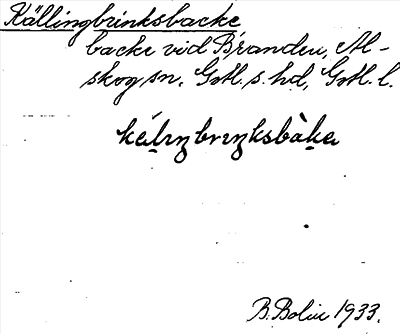 Källingbrinksbacke
backe vid Branden, Al-
skog sn. Gotl. s. hd, Gotl. l.
kálıŋbrıŋksbàka
B. Bolin 1933.